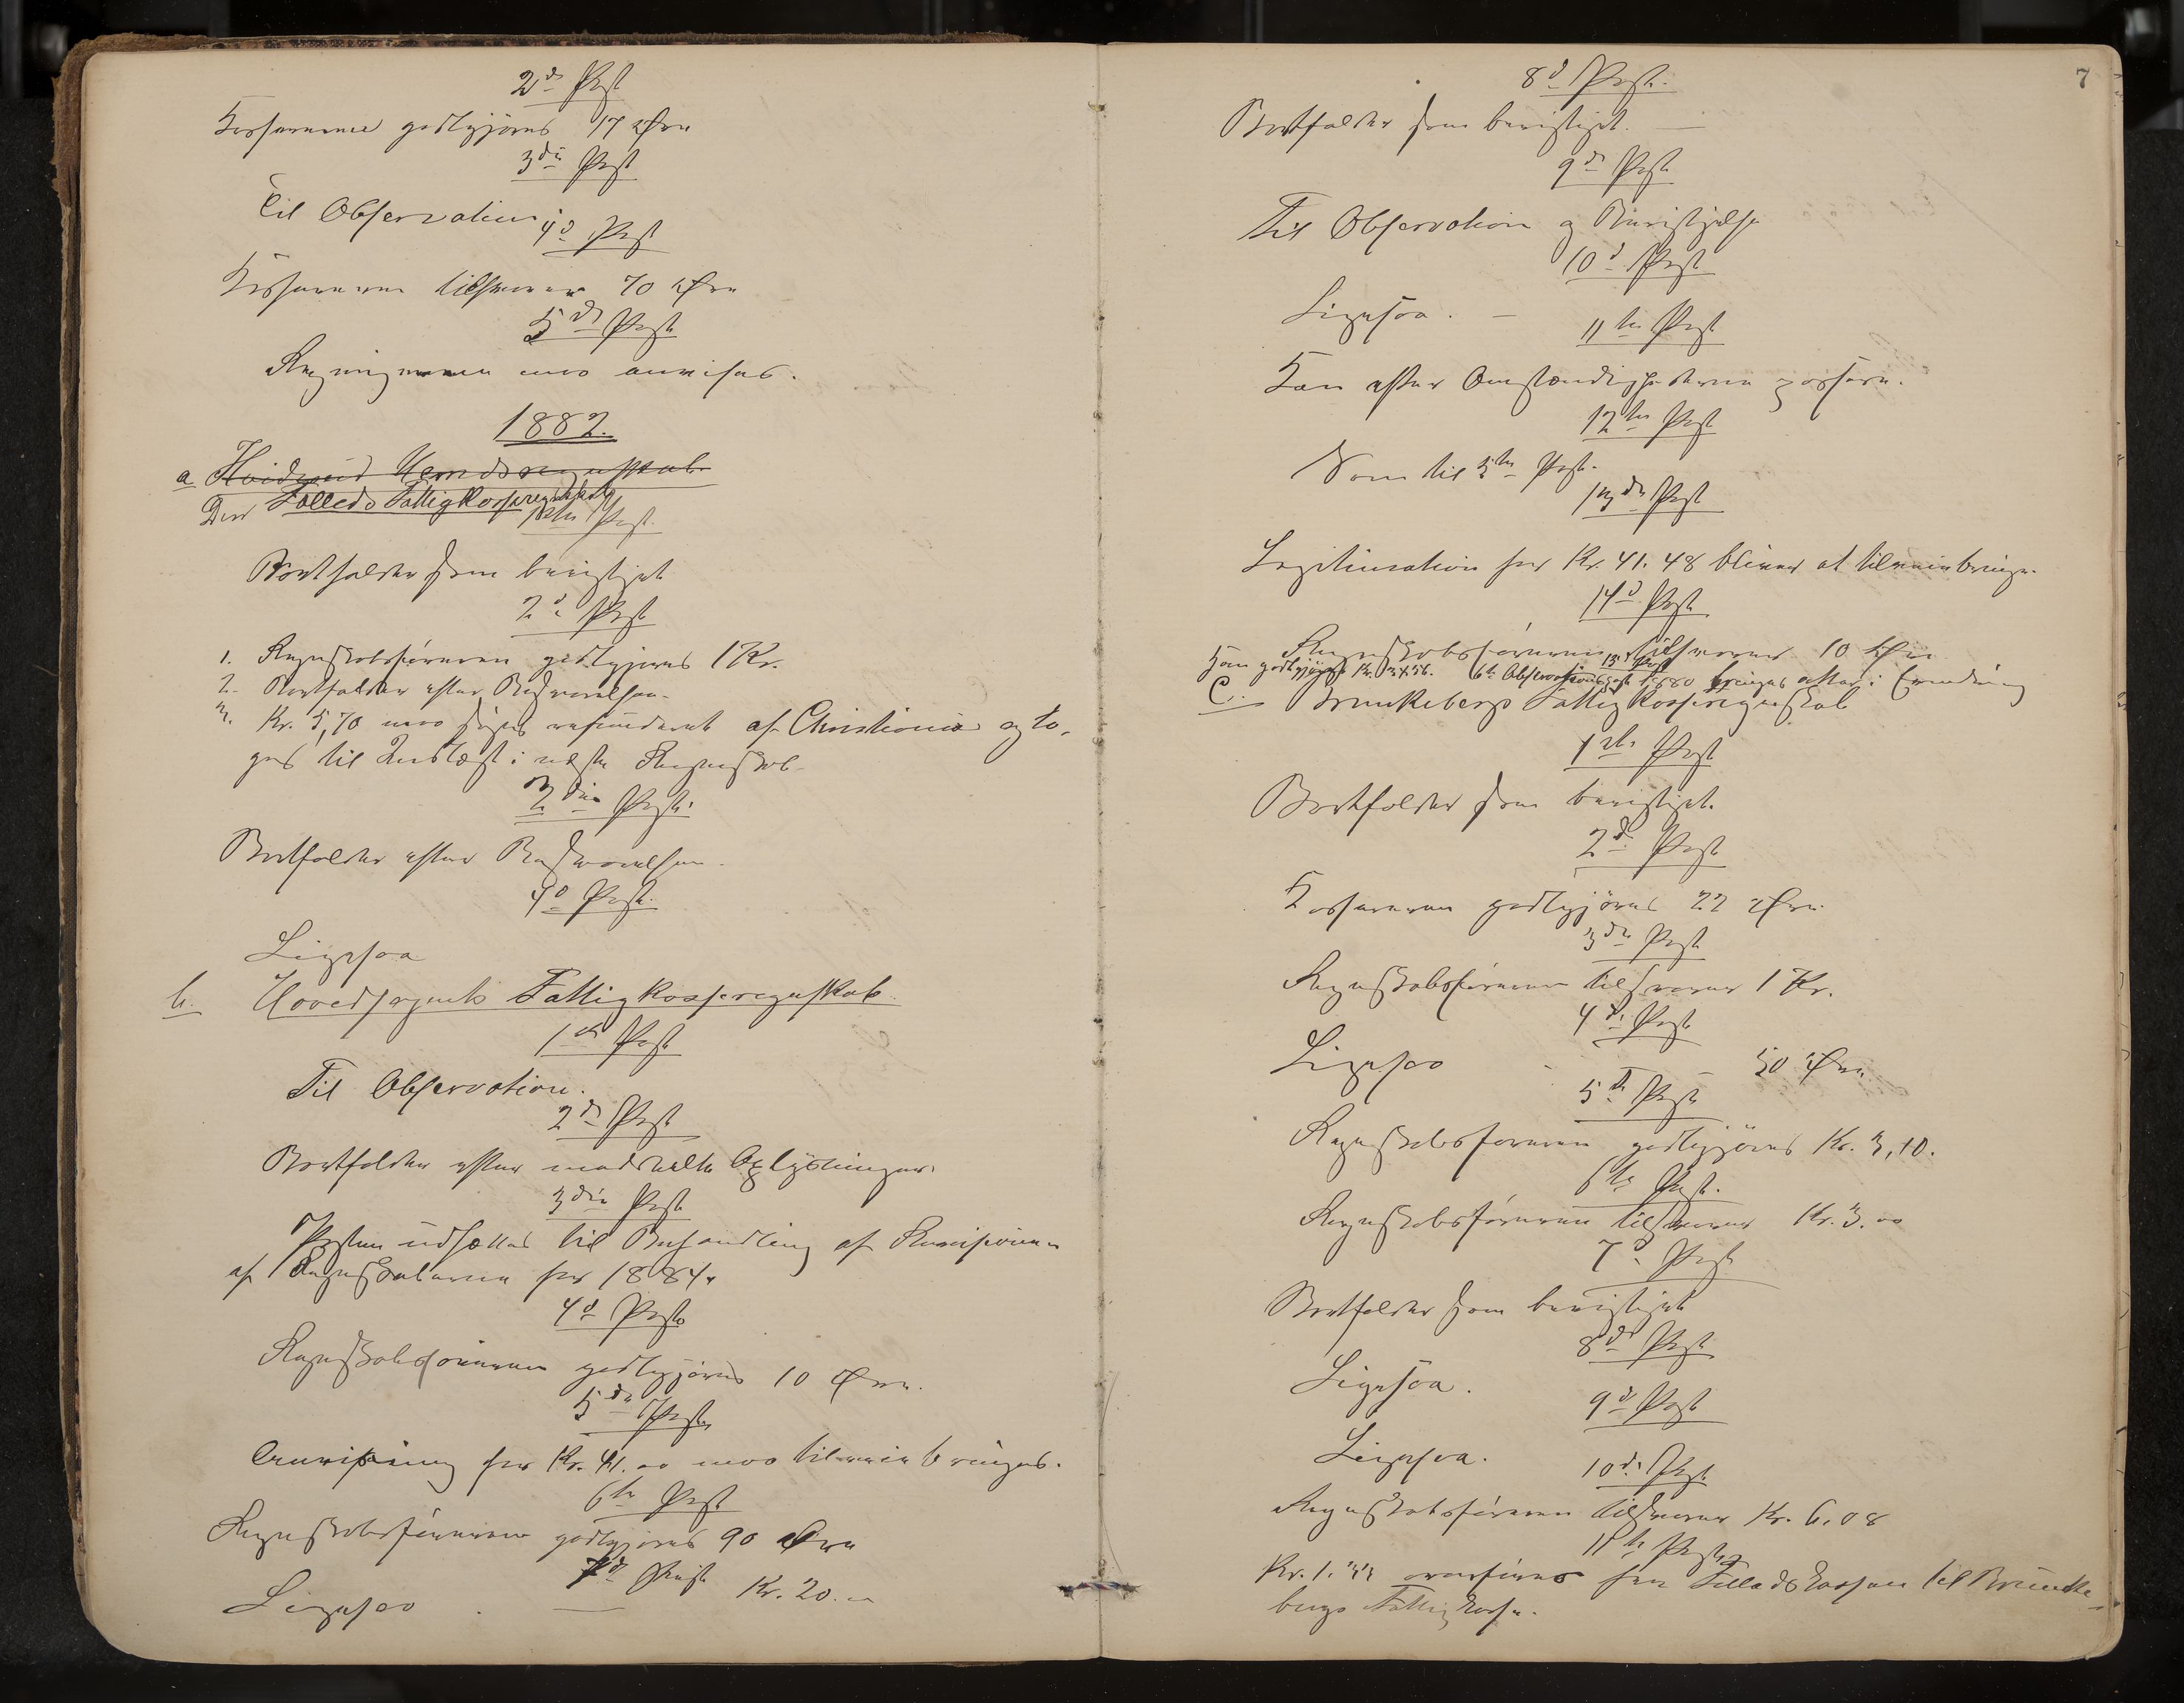 2den Post
Kassereren godtgjøres 17 Øre
3die Post
Til Observation.
4d Post
Kassereren tilsvarer 70 Øre
5te Post
Regningerne maa anvises.
1882.
a Hvideseid Herredsregnskab
Den Fælleds Fattigkasseregnskab
1ste Post.
Bortfalder som bevistjet
2d Post
1. Regnskabsføreren godtgjøres 1 Kr.
2. Bortfalder efter Besvarelsen.
3. Kr. 5,70 maa søges refunderet af Christiania og ta-
ges til Indtægt i næste Regnskab
3die Post.
Bortfalder efter Besvarelsen.
4d Post.
Ligesaa
b. Hovedsognets Fattigkasseregnskab.
1ste Post
Til Observation.
2den Post
Bortfalder efter meddelte Oplysninger.
3die Post
Posten udsættes til Behandling af Revisionen
af Regnskaberne for 1884.
4d Post
Regnskabsføreren godtgjøres 10 Øre.
5te Post
Anvisning for Kr. 41.00 maa tilveiebringes.
6te Post
Regnskabsføreren godtgjøres 90 Øre
7d Post
Ligesaa . — Kr. 20.00
7
8d Post.
Bortfalder som bevistjet. —
9de Post
Til Observation og
10d Post
Ligesaa. —
11te Post
Kan efter Omstændighederne passere.
12te Post
Som til 5te Post.
13de Post
Legitimation for Kr. 41.48 bliver at tilveiebringe.
14d Post
Regnskabsføreren tilsvarer 10 Øre
15d Post
Ham godtgjøres Kr. 6te Observationspost 1880 bringes atter i Erindring
C. Brunkebergs Fattigkasseregnskab
1ste Post
Bortfalder som bevistjet.
2d Post
Kassereren godtgjøres 22 Øre.
3die Post
Regnskabsføreren tilsvarer 1 Kr.
4de Post
Ligesaa - - 50 Øre
5te Post
Regnskabsføreren godtgjøres Kr. 3,10.
6te Post.
Regnskabsføreren tilsvarer Kr. 3.00
7d Post
Bortfalder som bevistjet
8de Post
Ligesaa.
9d Post
Ligesaa.
10de Post
Regnskabsføreren tilsvarer Kr. 6,08
11te Post
Kr. 1.33 overføres fra Fælledskassen til Brunke-
bergs Fattigkasse.